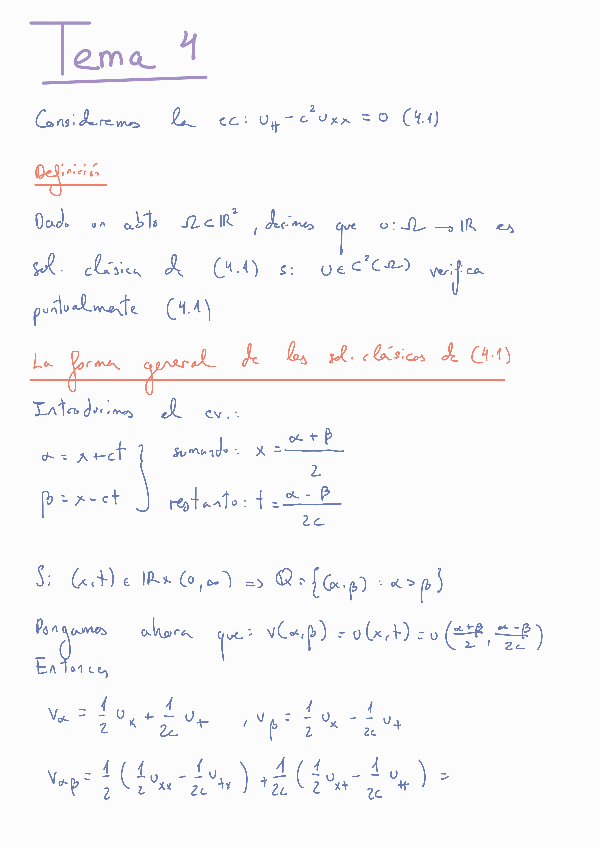 Tema 4
Consideremos la ec: u_tt - c²u_xx = 0 (4.1)
Definición
Dado un abto Ω⊂ℝ², decimos que u: Ω → ℝ es
sol. clásica de (4.1) si u ∈ C²(Ω) verifica
puntualmente (4.1)
La forma general de las sol. clásicas de (4.1)
Introducimos el cv.:
α = x+ct } sumando: x = (α + β)/2
β = x-ct } restanto: t = (α - β)/2c
Si (x,t) ∈ ℝ×(0,∞) => Q = {(α,β) : α > β}
Pongamos ahora que: v(α,β) = u(x,t) = u((α+β)/2, (α-β)/2c)
Entonces
v_α = 1/2 u_x + 1/2c u_t , v_β = 1/2 u_x - 1/2c u_t
v_αβ = 1/2 (1/2 u_xx - 1/2c u_tx) + 1/2c (1/2 u_xt - 1/2c u_tt) =